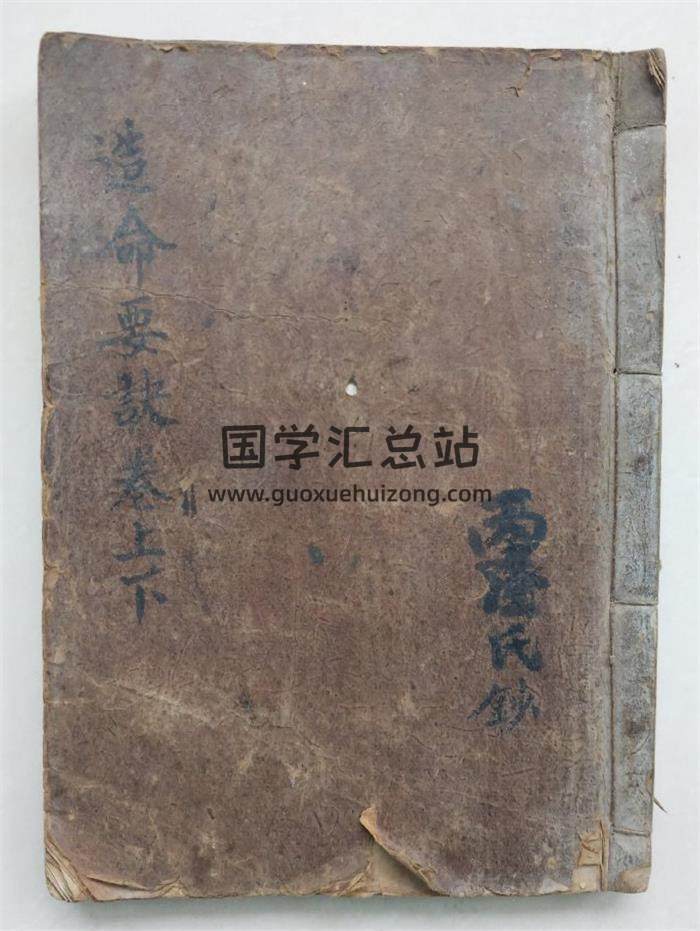 造命要訣卷上下
国学汇总站
www.guoxuehuizong.com
丙氏鈔